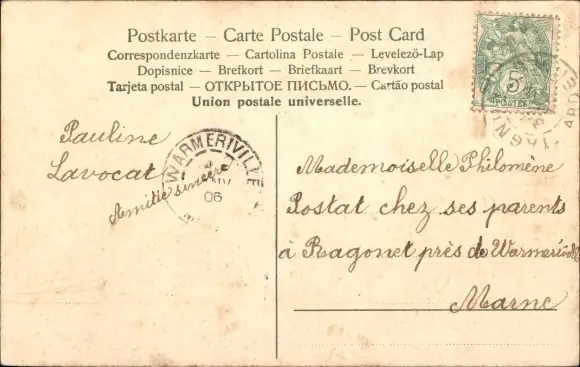 Postkarte — Carte Postale — Post Card
Correspondenzkarte — Cartolina Postale — Levelezö-Lap
Dopisnice — Brefkort — Briefkaart — Brevkort
Tarjeta postal — ОТКРЫТОЕ ПИСЬМО. — Cartão postal
Union postale universelle.
5
POSTES
Pauline
Lavocat
Amitié sincère
WARMERIVILLE
06
Mademoiselle Philomène
Postat chez ses parents
à Ragonet près de
Marne